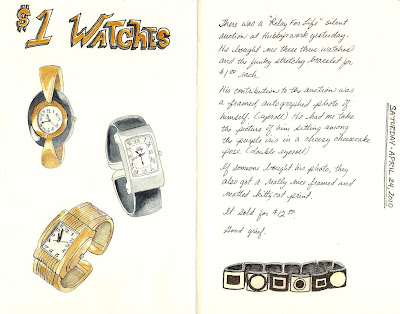 $1 WATCHES
There was a "Relay For Life" silent
auction at Hubby's work yesterday.
He bought me these three watches
and the funky stretchy bracelet for
$1.00 each.
His contribution to the auction was
a framed, autographed photo of
himself. (eyeroll) He had me take
the picture of him sitting among
the purple iris in a cheesy cheesecake
pose. (double eyeroll)
If someone bought his photo, they
also got a really nice framed and
matted kitty cat print.
It sold for $12.00.
Good grief.
SATURDAY - APRIL 24, 2010